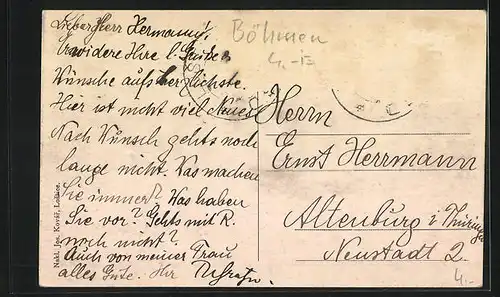 Lieber Herr Hermann!
Erwidere Ihre l. Grüße
Wünsche aufs herzlichste.
Hier ist nicht viel Neues
Nach Wunsch gehts noch
lange nicht. Was machen
Sie immer? Was haben
Sie vor? Gehts mit R.
noch nicht?
Auch von meiner Frau
alles Gute. Ihr
Böhmen
4.-
Herrn
Ernst Herrmann
Altenburg i. Thüringen
Neustadt 2.
4.-
Nakl. Ign. Kovář,